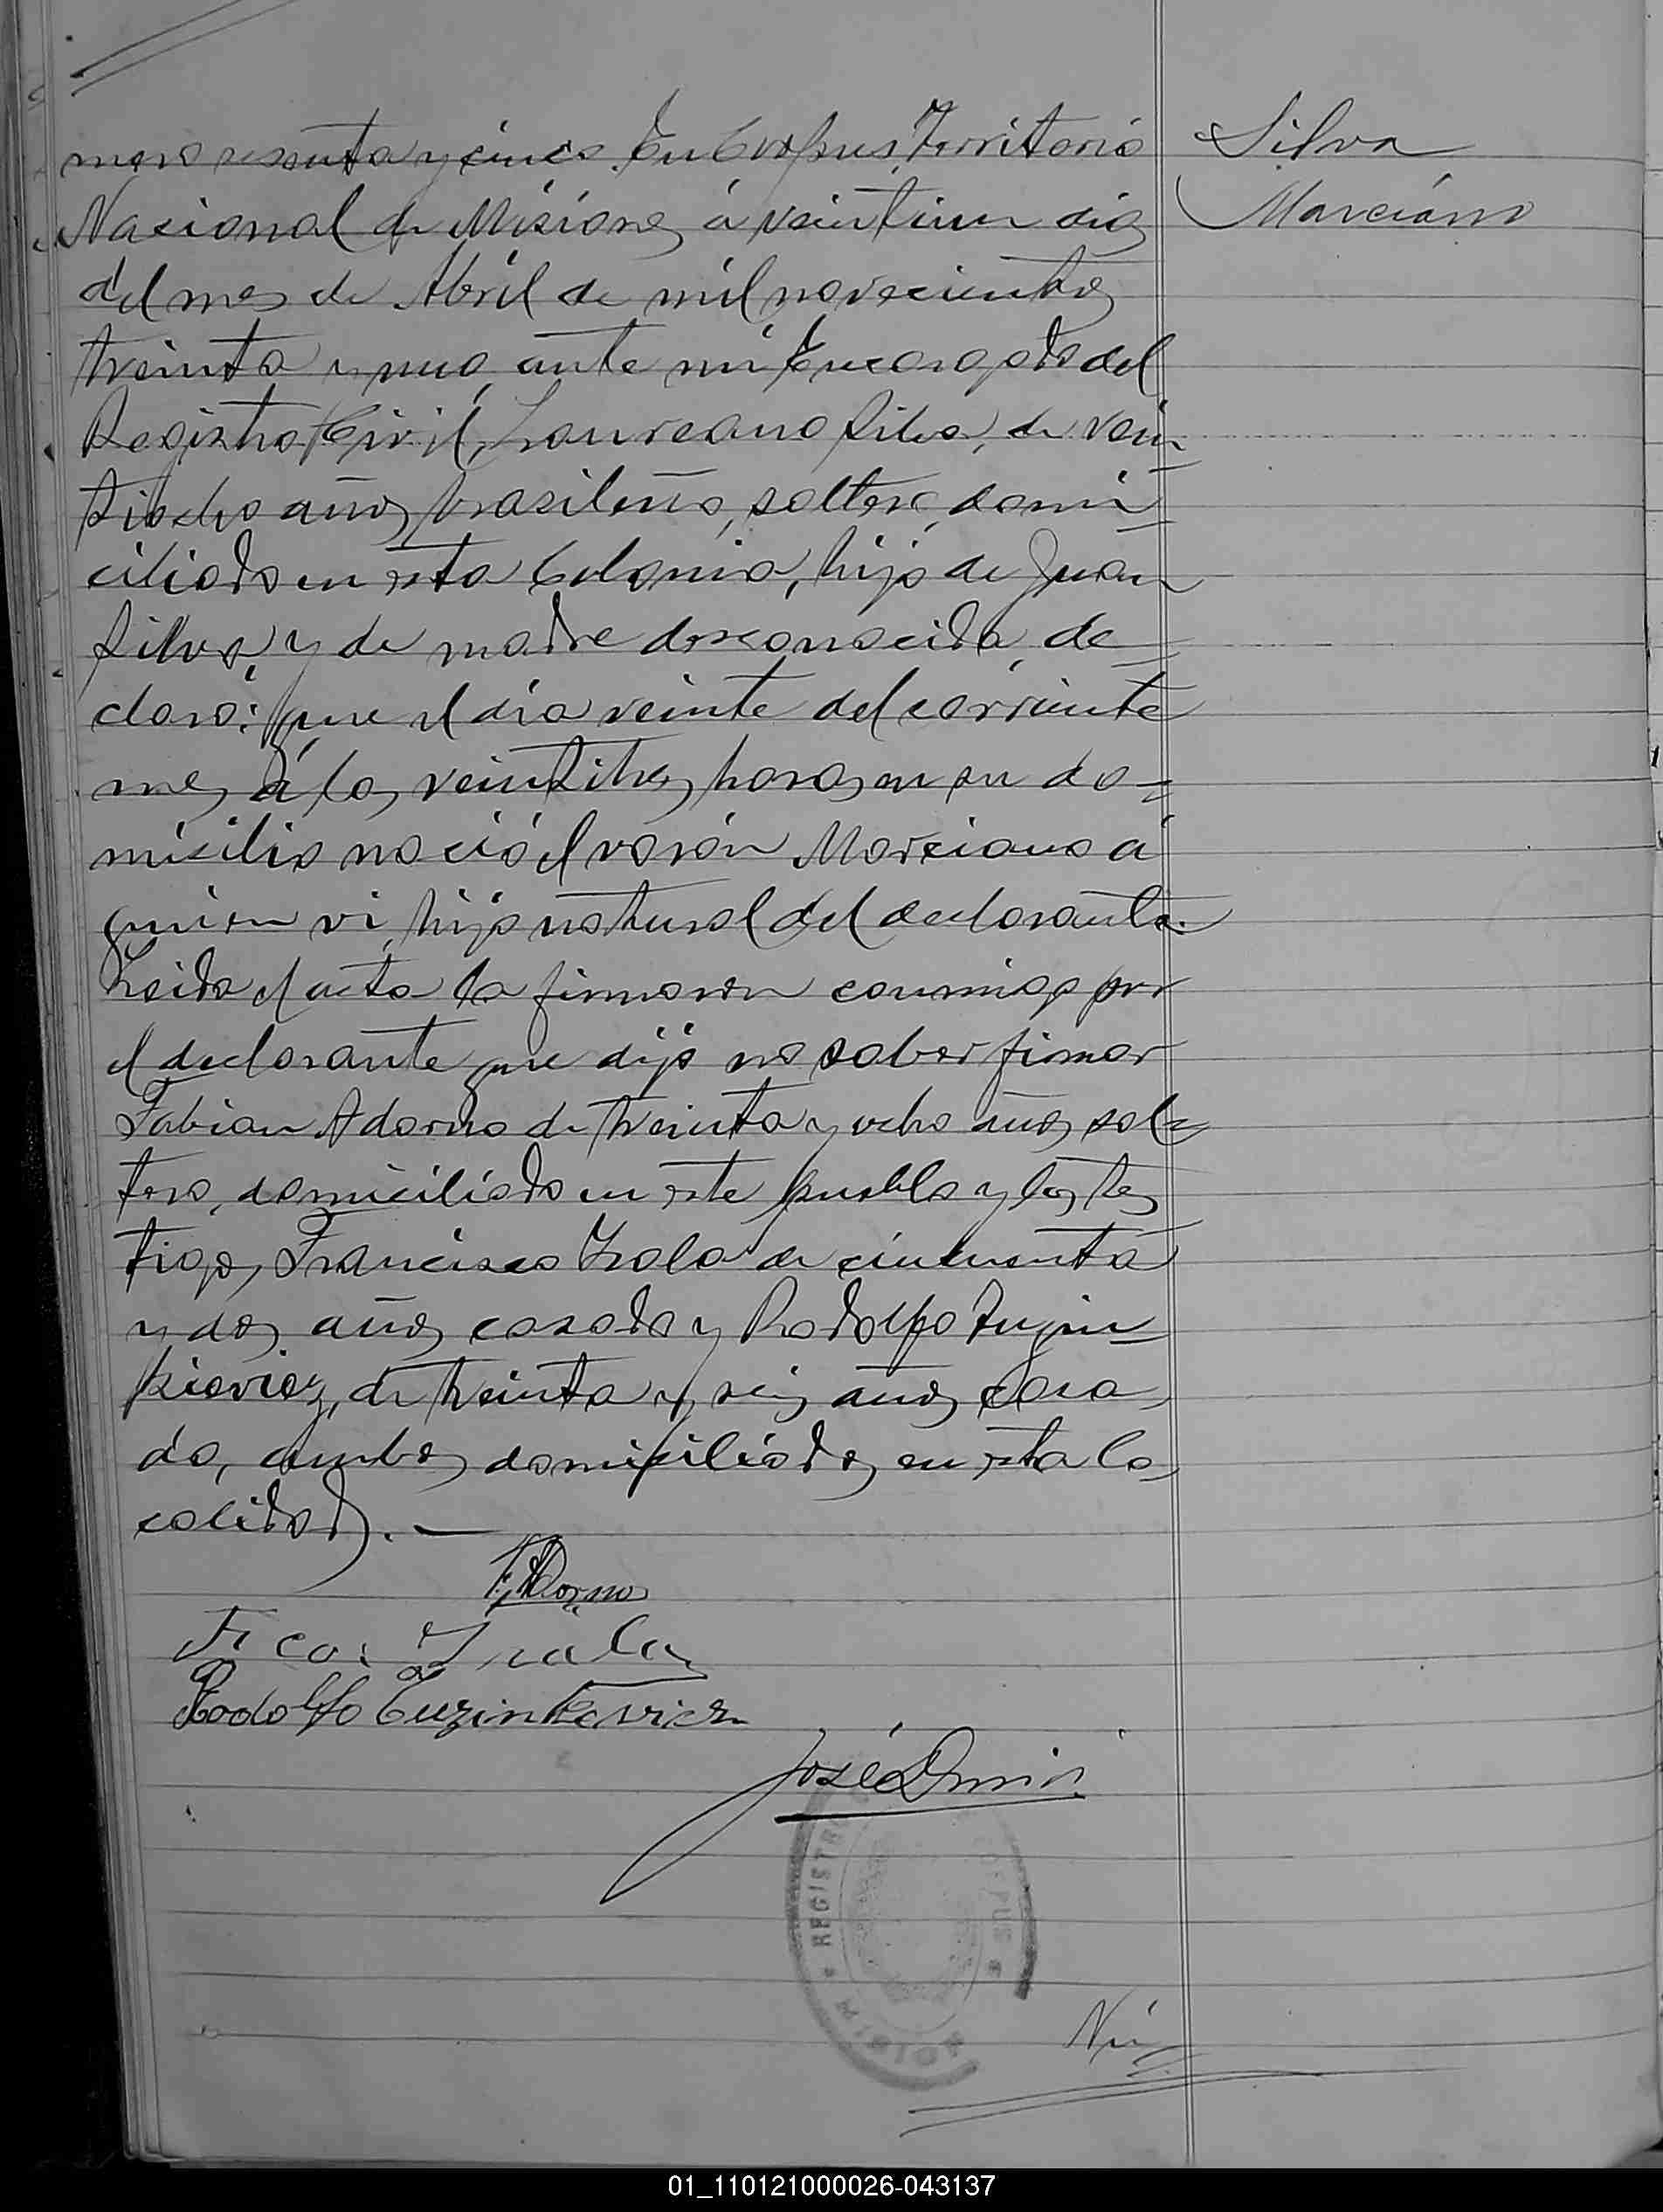 mero sesenta y cinco. En Corpus, Territorio
Nacional de Misiones, á veintiun dias
del mes de Abril de mil novecientos
treinta y uno, ante mi Encargado del
Registro Civil, Laureano Silva, de vein
tiocho años, brasileño, soltero, domi
ciliado en esta Colonia, hijo de Juan
Silva, y de madre desconocida, de
claró: que el dia veinte del corriente
mes á las veintitres horas en su do
micilio nació el varón Marciano á
quien vi, hijo natural del declarante.
Leida el acta la firmaron conmigo por
el declarante que dijo no saber firmar
Fabian Adorno de treinta y ocho años, sol
tero, domiciliado en este pueblo y los tes
tigos, Francisco Irala de cincuenta
y dos años casado y Rodolfo Cuzin
kievicz, de treinta y seis años, casa
do, ambos domiciliados en esta lo
calidad. —
Silva
Marciano
F. Adorno
Fco. Irala
Rodolfo Cuzinkevicz
José
REGISTRO
CORPUS
MISIONES
Nú
01_110121000026-043137